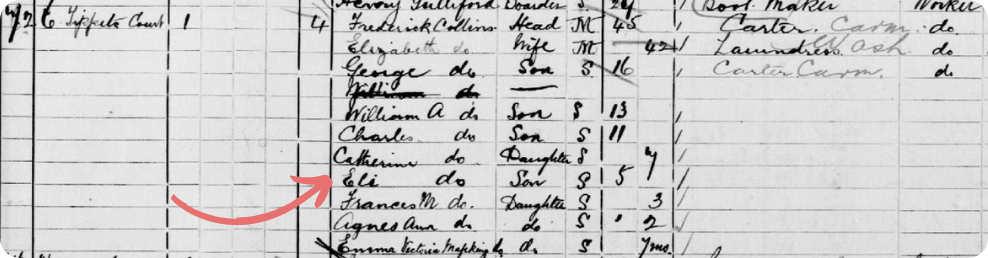 Henery Gulliford Boarder S 24 / Boot Maker Worker
72 6 Tippets Court 1 4 Frederick Collins Head M 45 / Carter Carm. do
Elizabeth do Wife M 42 / Laundress Wash do
George do Son S 16 / Carter Carm. do
William do
William A do Son S 13 /
Charles do Son S 11 /
Catherine do Daughter S 7 /
Eli do Son S 5 /
Frances M do. Daughter S 3 /
Agnes Ann do do S 2 /
Emma Victoria Mafeking do do S 7mo.